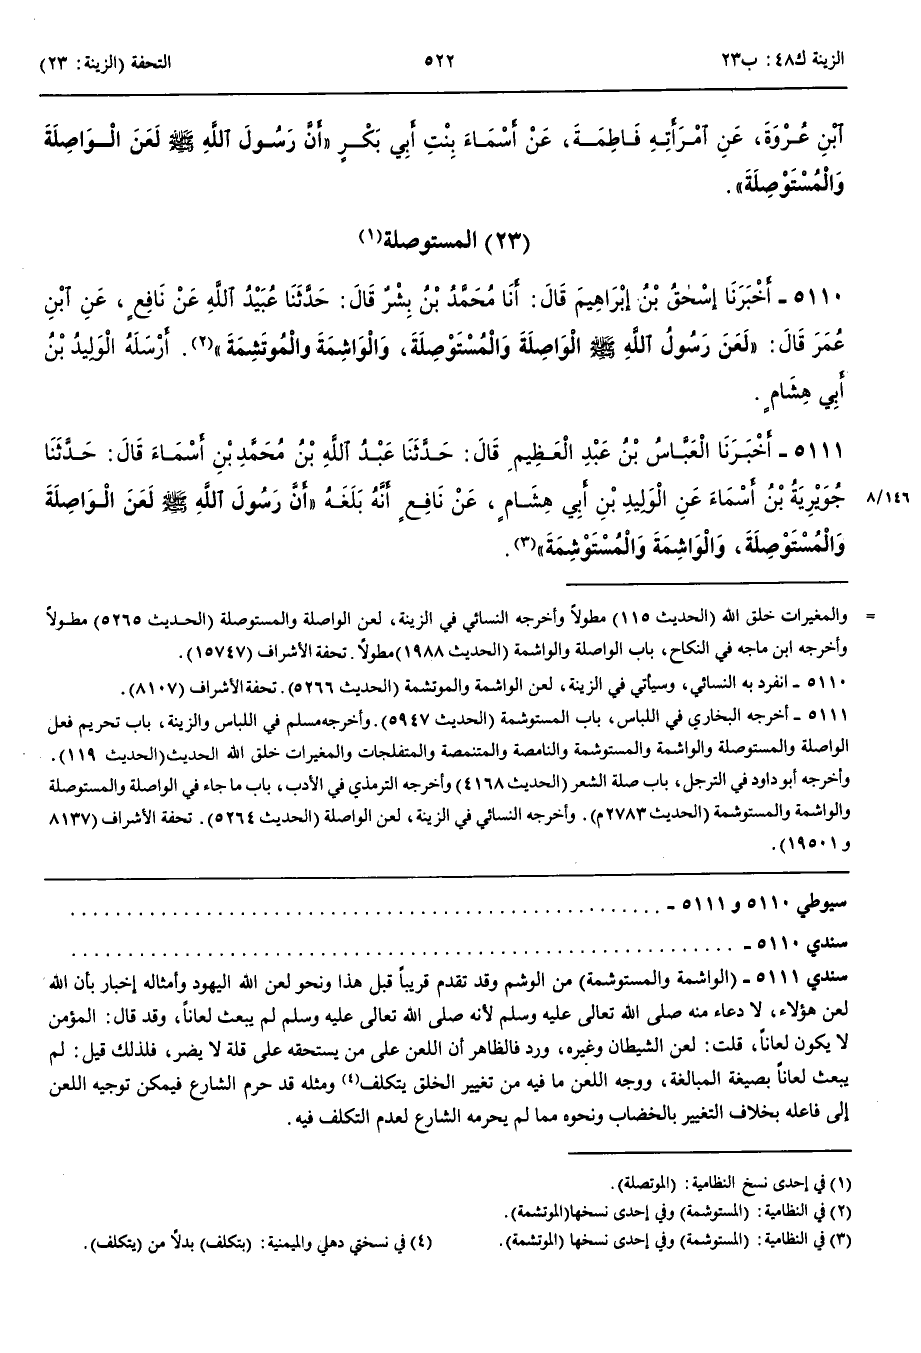 الزينة ك٤٨: ب٢٣ ٥٢٢ التحفة (الزينة: ٢٣)
ٱبْنِ عُرْوَةَ، عَنِ ٱمْرَأَتِهِ فَاطِمَةَ، عَنْ أَسْمَاءَ بِنْتِ أَبِي بَكْرٍ «أَنَّ رَسُولَ ٱللَّهِ ﷺ لَعَنَ الْوَاصِلَةَ
وَالْمُسْتَوْصِلَةَ».
(٢٣) المستوصلة(١)
٥١١٠ - أَخْبَرَنَا إِسْحٰقُ بْنُ إِبْرَاهِيمَ قَالَ: أَنَا مُحَمَّدُ بْنُ بِشْرٍ قَالَ: حَدَّثَنَا عُبَيْدُ ٱللَّهِ عَنْ نَافِعٍ، عَنِ ٱبْنِ
عُمَرَ قَالَ: «لَعَنَ رَسُولُ ٱللَّهِ ﷺ الْوَاصِلَةَ وَالْمُسْتَوْصِلَةَ، وَالْوَاشِمَةَ والْمُوتَشِمَةَ»(٢). أَرْسَلَهُ الْوَلِيدُ بْنُ
أَبِي هِشَامٍ.
٥١١١ - أَخْبَرَنَا الْعَبَّاسُ بْنُ عَبْدِ الْعَظِيمِ قَالَ: حَدَّثَنَا عَبْدُ ٱللَّهِ بْنُ مُحَمَّدِ بْنِ أَسْمَاءَ قَالَ: حَدَّثَنَا
جُوَيْرِيَةُ بْنُ أَسْمَاءَ عَنِ الْوَلِيدِ بْنِ أَبِي هِشَامٍ، عَنْ نَافِعٍ أَنَّهُ بَلَغَهُ «أَنَّ رَسُولَ ٱللَّهِ ﷺ لَعَنَ الْوَاصِلَةَ
٨/١٤٦
وَالْمُسْتَوْصِلَةَ، وَالْوَاشِمَةَ وَالْمُسْتَوْشِمَةَ»(٣).
= والمغيرات خلق الله (الحديث ١١٥) مطولاً وأخرجه النسائي في الزينة، لعن الواصلة والمستوصلة (الحديث ٥٢٦٥) مطولاً
وأخرجه ابن ماجه في النكاح، باب الواصلة والواشمة (الحديث ١٩٨٨)مطولاً. تحفة الأشراف (١٥٧٤٧).
٥١١٠ - انفرد به النسائي، وسيأتي في الزينة، لعن الواشمة والموتشمة (الحديث ٥٢٦٦). تحفة الأشراف (٨١٠٧).
٥١١١ - أخرجه البخاري في اللباس، باب المستوشمة (الحديث ٥٩٤٧). وأخرجه مسلم في اللباس والزينة، باب تحريم فعل
الواصلة والمستوصلة والواشمة والمستوشمة والنامصة والمتنمصة والمتفلجات والمغيرات خلق الله الحديث(الحديث ١١٩).
وأخرجه أبو داود في الترجل، باب صلة الشعر (الحديث ٤١٦٨) وأخرجه الترمذي في الأدب، باب ما جاء في الواصلة والمستوصلة
والواشمة والمستوشمة (الحديث ٢٧٨٣م). وأخرجه النسائي في الزينة، لعن الواصلة (الحديث ٥٢٦٤). تحفة الأشراف (٨١٣٧
و ١٩٥٠١).
سيوطي ٥١١٠ و ٥١١١ - ..................................................
سندي ٥١١٠ - ........................................................
سندي ٥١١١ - (الواشمة والمستوشمة) من الوشم وقد تقدم قريباً قبل هذا ونحو لعن الله اليهود وأمثاله إخبار بأن الله
لعن هؤلاء، لا دعاء منه صلى الله تعالى عليه وسلم لأنه صلى الله تعالى عليه وسلم لم يبعث لعاناً، وقد قال: المؤمن
لا يكون لعاناً، قلت: لعن الشيطان وغيره، ورد فالظاهر أن اللعن على من يستحقه على قلة لا يضر، فلذلك قيل: لم
يبعث لعاناً بصيغة المبالغة، ووجه اللعن ما فيه من تغيير الخلق يتكلف(٤) ومثله قد حرم الشارع فيمكن توجيه اللعن
إلى فاعله بخلاف التغيير بالخضاب ونحوه مما لم يحرمه الشارع لعدم التكلف فيه.
(١) في إحدى نسخ النظامية: (الموتصلة).
(٢) في النظامية: (المستوشمة) وفي إحدى نسخها(الموتشمة).
(٣) في النظامية: (المستوشمة) وفي إحدى نسخها (الموتشمة). (٤) في نسختي دهلي والميمنية: (بتكلف) بدلاً من (يتكلف).